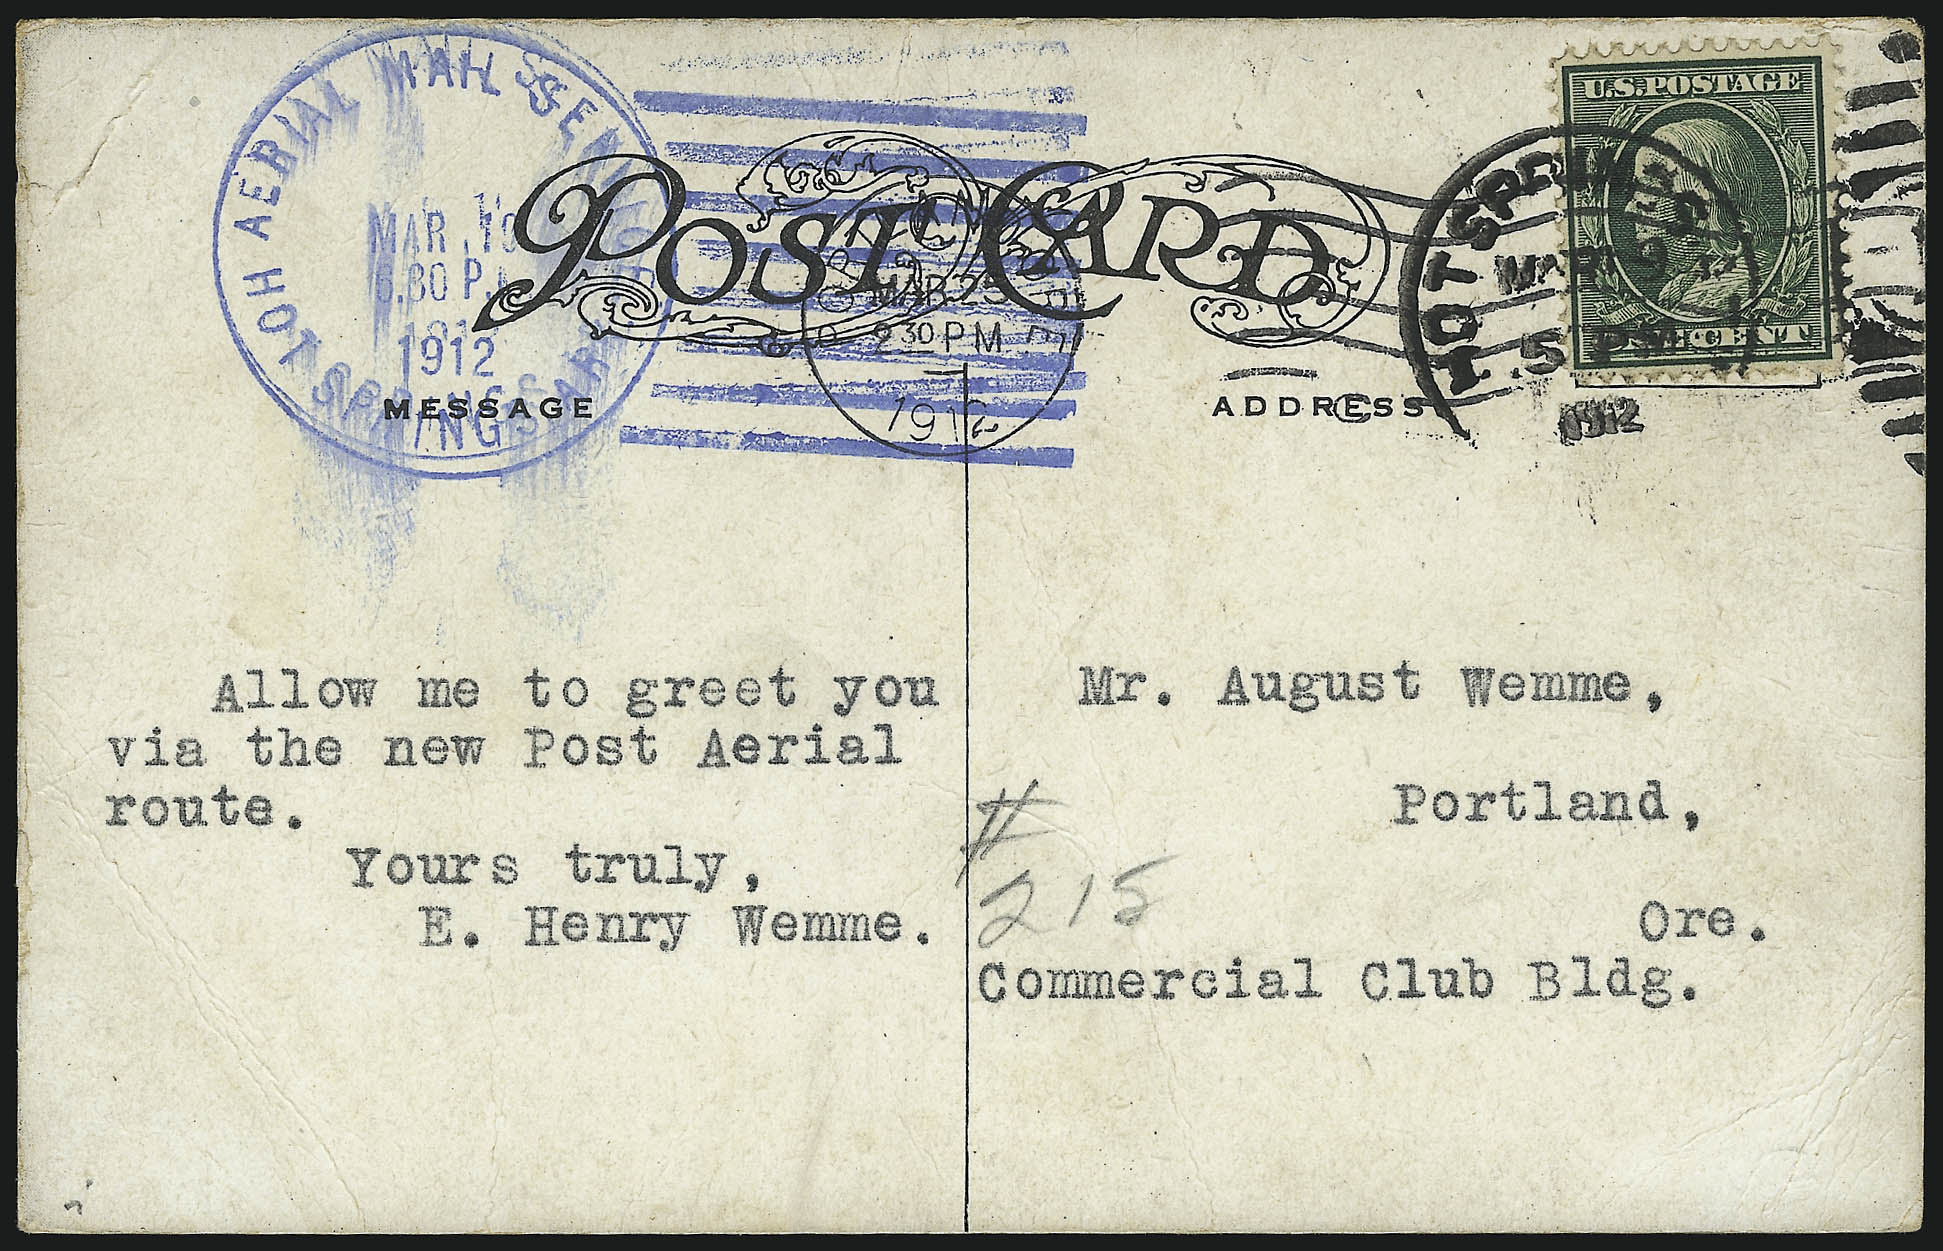 AERIAL MAIL SERVICE
MAR 19
6.30 P.M
1912
HOT SPRINGS ARK
POST CARD
MAR 25
2 30 PM
1912
HOT SPRINGS
MAR
5
1912
U.S. POSTAGE
ONE CENT
MESSAGE
ADDRESS
Allow me to greet you
via the new Post Aerial
route.
Yours truly,
E. Henry Wemme.
Mr. August Wemme,
Portland,
Ore.
# 215
Commercial Club Bldg.